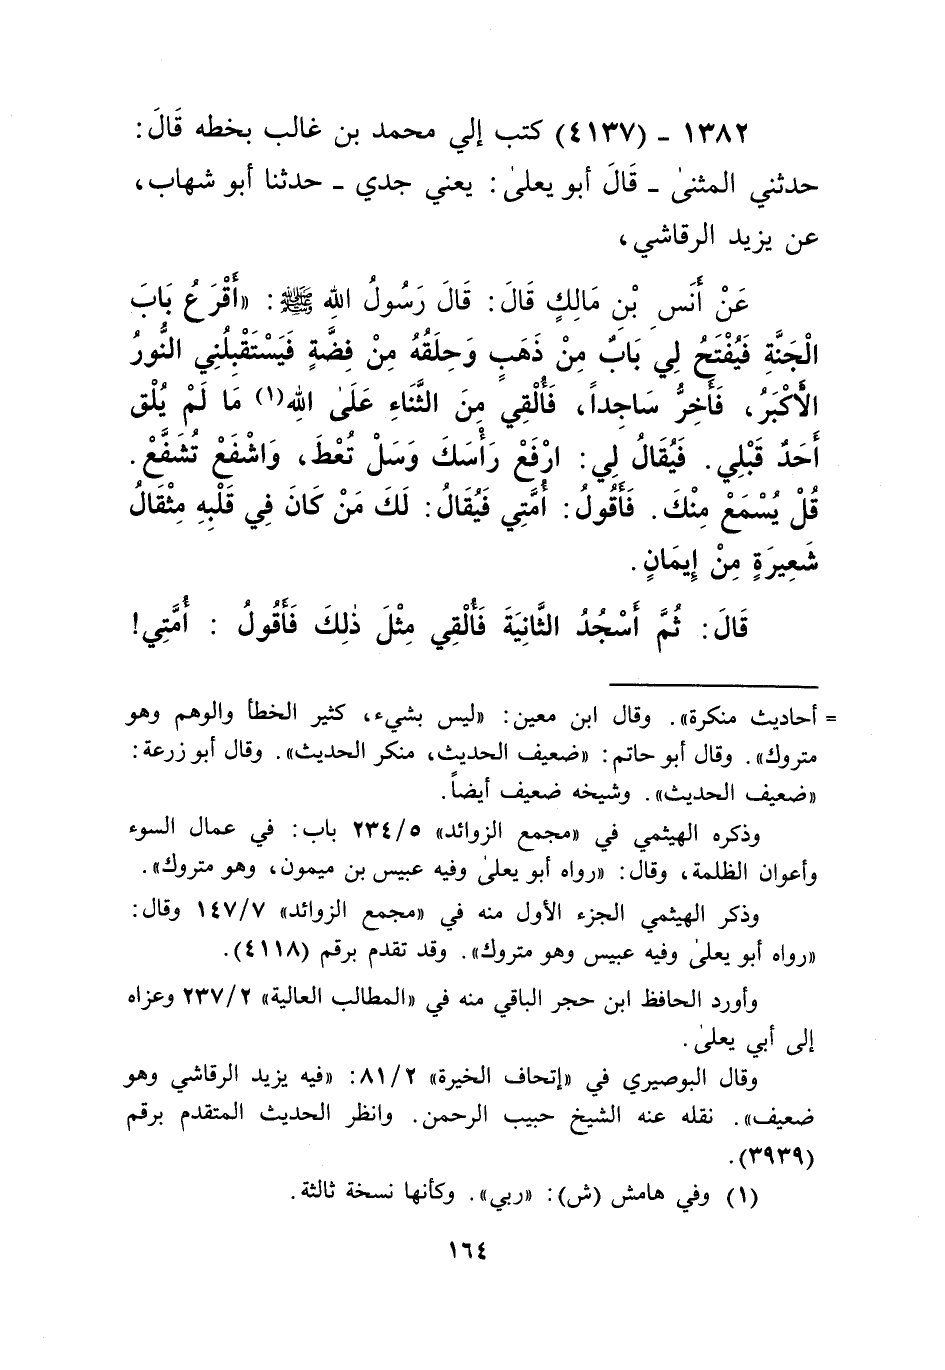 ١٣٨٢ - (٤١٣٧) كتب إلي محمد بن غالب بخطه قَالَ:
حدثني المثنىٰ - قَالَ أبو يعلىٰ: يعني جدي - حدثنا أبو شهاب،
عن يزيد الرقاشي،
عَنْ أَنَسِ بْنِ مَالِكٍ قَالَ: قَالَ رَسُولُ اللهِ ﷺ: «أَقْرَعُ بَابَ
الْجَنَّةِ فَيُفْتَحُ لِي بَابٌ مِنْ ذَهَبٍ وَحِلَقُهُ مِنْ فِضَّةٍ فَيَسْتَقْبِلُنِي النُّورُ
الأَكْبَرُ، فَأَخِرُّ سَاجِداً، فَأُلْقِي مِنَ الثَّنَاءِ عَلَىٰ اللهِ(١) مَا لَمْ يُلْقِ
أَحَدٌ قَبْلِي. فَيُقَالُ لِي: ارْفَعْ رَأْسَكَ وَسَلْ تُعْطَ، وَاشْفَعْ تُشَفَّعْ.
قُلْ يُسْمَعْ مِنْكَ. فَأَقُولُ: أُمَّتِي فَيُقَالُ: لَكَ مَنْ كَانَ فِي قَلْبِهِ مِثْقَالُ
شَعِيرَةٍ مِنْ إِيمَانٍ.
قَالَ: ثُمَّ أَسْجُدُ الثَّانِيَةَ فَأُلْقِي مِثْلَ ذٰلِكَ فَأَقُولُ : أُمَّتِي!
= أحاديث منكرة». وقال ابن معين: «ليس بشيء، كثير الخطأ والوهم وهو
متروك». وقال أبو حاتم: «ضعيف الحديث، منكر الحديث». وقال أبو زرعة:
«ضعيف الحديث». وشيخه ضعيف أيضاً.
وذكره الهيثمي في «مجمع الزوائد» ٢٣٤/٥ باب: في عمال السوء
وأعوان الظلمة، وقال: «رواه أبو يعلىٰ وفيه عبيس بن ميمون، وهو متروك».
وذكر الهيثمي الجزء الأول منه في «مجمع الزوائد» ١٤٧/٧ وقال:
«رواه أبو يعلىٰ وفيه عبيس وهو متروك». وقد تقدم برقم (٤١١٨).
وأورد الحافظ ابن حجر الباقي منه في «المطالب العالية» ٢٣٧/٢ وعزاه
إلى أبي يعلىٰ.
وقال البوصيري في «إتحاف الخيرة» ٨١/٢: «فيه يزيد الرقاشي وهو
ضعيف». نقله عنه الشيخ حبيب الرحمن. وانظر الحديث المتقدم برقم
(٣٩٣٩).
(١) وفي هامش (ش): «ربي». وكأنها نسخة ثالثة.
١٦٤